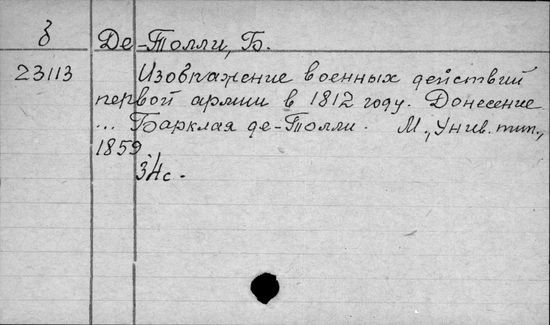 δ Де-Толли, Б.
23113 Изображение военных действий
первой армии в 1812 году. Донесение
... Барклая де-Толли. М., Унив. тип.,
1859.
34с.